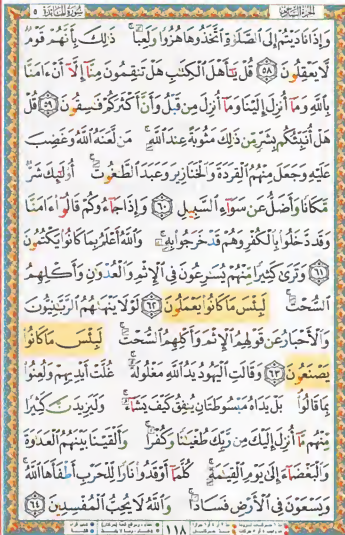 الجزء السادس سورة المائدة ٥
وَإِذَا نَادَيْتُمْ إِلَى الصَّلَوٰةِ اتَّخَذُوهَا هُزُوًا وَلَعِبًا ۚ ذَٰلِكَ بِأَنَّهُمْ قَوْمٌ
لَّا يَعْقِلُونَ ٥٨ قُلْ يَٰٓأَهْلَ الْكِتَٰبِ هَلْ تَنقِمُونَ مِنَّآ إِلَّآ أَنْ ءَامَنَّا
بِاللَّهِ وَمَآ أُنزِلَ إِلَيْنَا وَمَآ أُنزِلَ مِن قَبْلُ وَأَنَّ أَكْثَرَكُمْ فَٰسِقُونَ ٥٩ قُلْ
هَلْ أُنَبِّئُكُم بِشَرٍّ مِّن ذَٰلِكَ مَثُوبَةً عِندَ اللَّهِ ۚ مَن لَّعَنَهُ اللَّهُ وَغَضِبَ
عَلَيْهِ وَجَعَلَ مِنْهُمُ الْقِرَدَةَ وَالْخَنَازِيرَ وَعَبَدَ الطَّٰغُوتَ ۚ أُولَٰٓئِكَ شَرٌّ
مَّكَانًا وَأَضَلُّ عَن سَوَآءِ السَّبِيلِ ٦٠ وَإِذَا جَآءُوكُمْ قَالُوٓا۟ ءَامَنَّا
وَقَد دَّخَلُوا۟ بِالْكُفْرِ وَهُمْ قَدْ خَرَجُوا۟ بِهِۦ ۚ وَاللَّهُ أَعْلَمُ بِمَا كَانُوا۟ يَكْتُمُونَ
٦١ وَتَرَىٰ كَثِيرًا مِّنْهُمْ يُسَٰرِعُونَ فِي الْإِثْمِ وَالْعُدْوَٰنِ وَأَكْلِهِمُ
السُّحْتَ ۚ لَبِئْسَ مَا كَانُوا۟ يَعْمَلُونَ ٦٢ لَوْلَا يَنْهَىٰهُمُ الرَّبَّٰنِيُّونَ
وَالْأَحْبَارُ عَن قَوْلِهِمُ الْإِثْمَ وَأَكْلِهِمُ السُّحْتَ ۚ لَبِئْسَ مَا كَانُوا۟
يَصْنَعُونَ ٦٣ وَقَالَتِ الْيَهُودُ يَدُ اللَّهِ مَغْلُولَةٌ ۚ غُلَّتْ أَيْدِيهِمْ وَلُعِنُوا۟
بِمَا قَالُوا۟ ۘ بَلْ يَدَاهُ مَبْسُوطَتَانِ يُنفِقُ كَيْفَ يَشَآءُ ۚ وَلَيَزِيدَنَّ كَثِيرًا
مِّنْهُم مَّآ أُنزِلَ إِلَيْكَ مِن رَّبِّكَ طُغْيَٰنًا وَكُفْرًا ۚ وَأَلْقَيْنَا بَيْنَهُمُ الْعَدَٰوَةَ
وَالْبَغْضَآءَ إِلَىٰ يَوْمِ الْقِيَٰمَةِ ۚ كُلَّمَآ أَوْقَدُوا۟ نَارًا لِّلْحَرْبِ أَطْفَأَهَا اللَّهُ ۚ
وَيَسْعَوْنَ فِي الْأَرْضِ فَسَادًا ۚ وَاللَّهُ لَا يُحِبُّ الْمُفْسِدِينَ ٦٤
١١٨